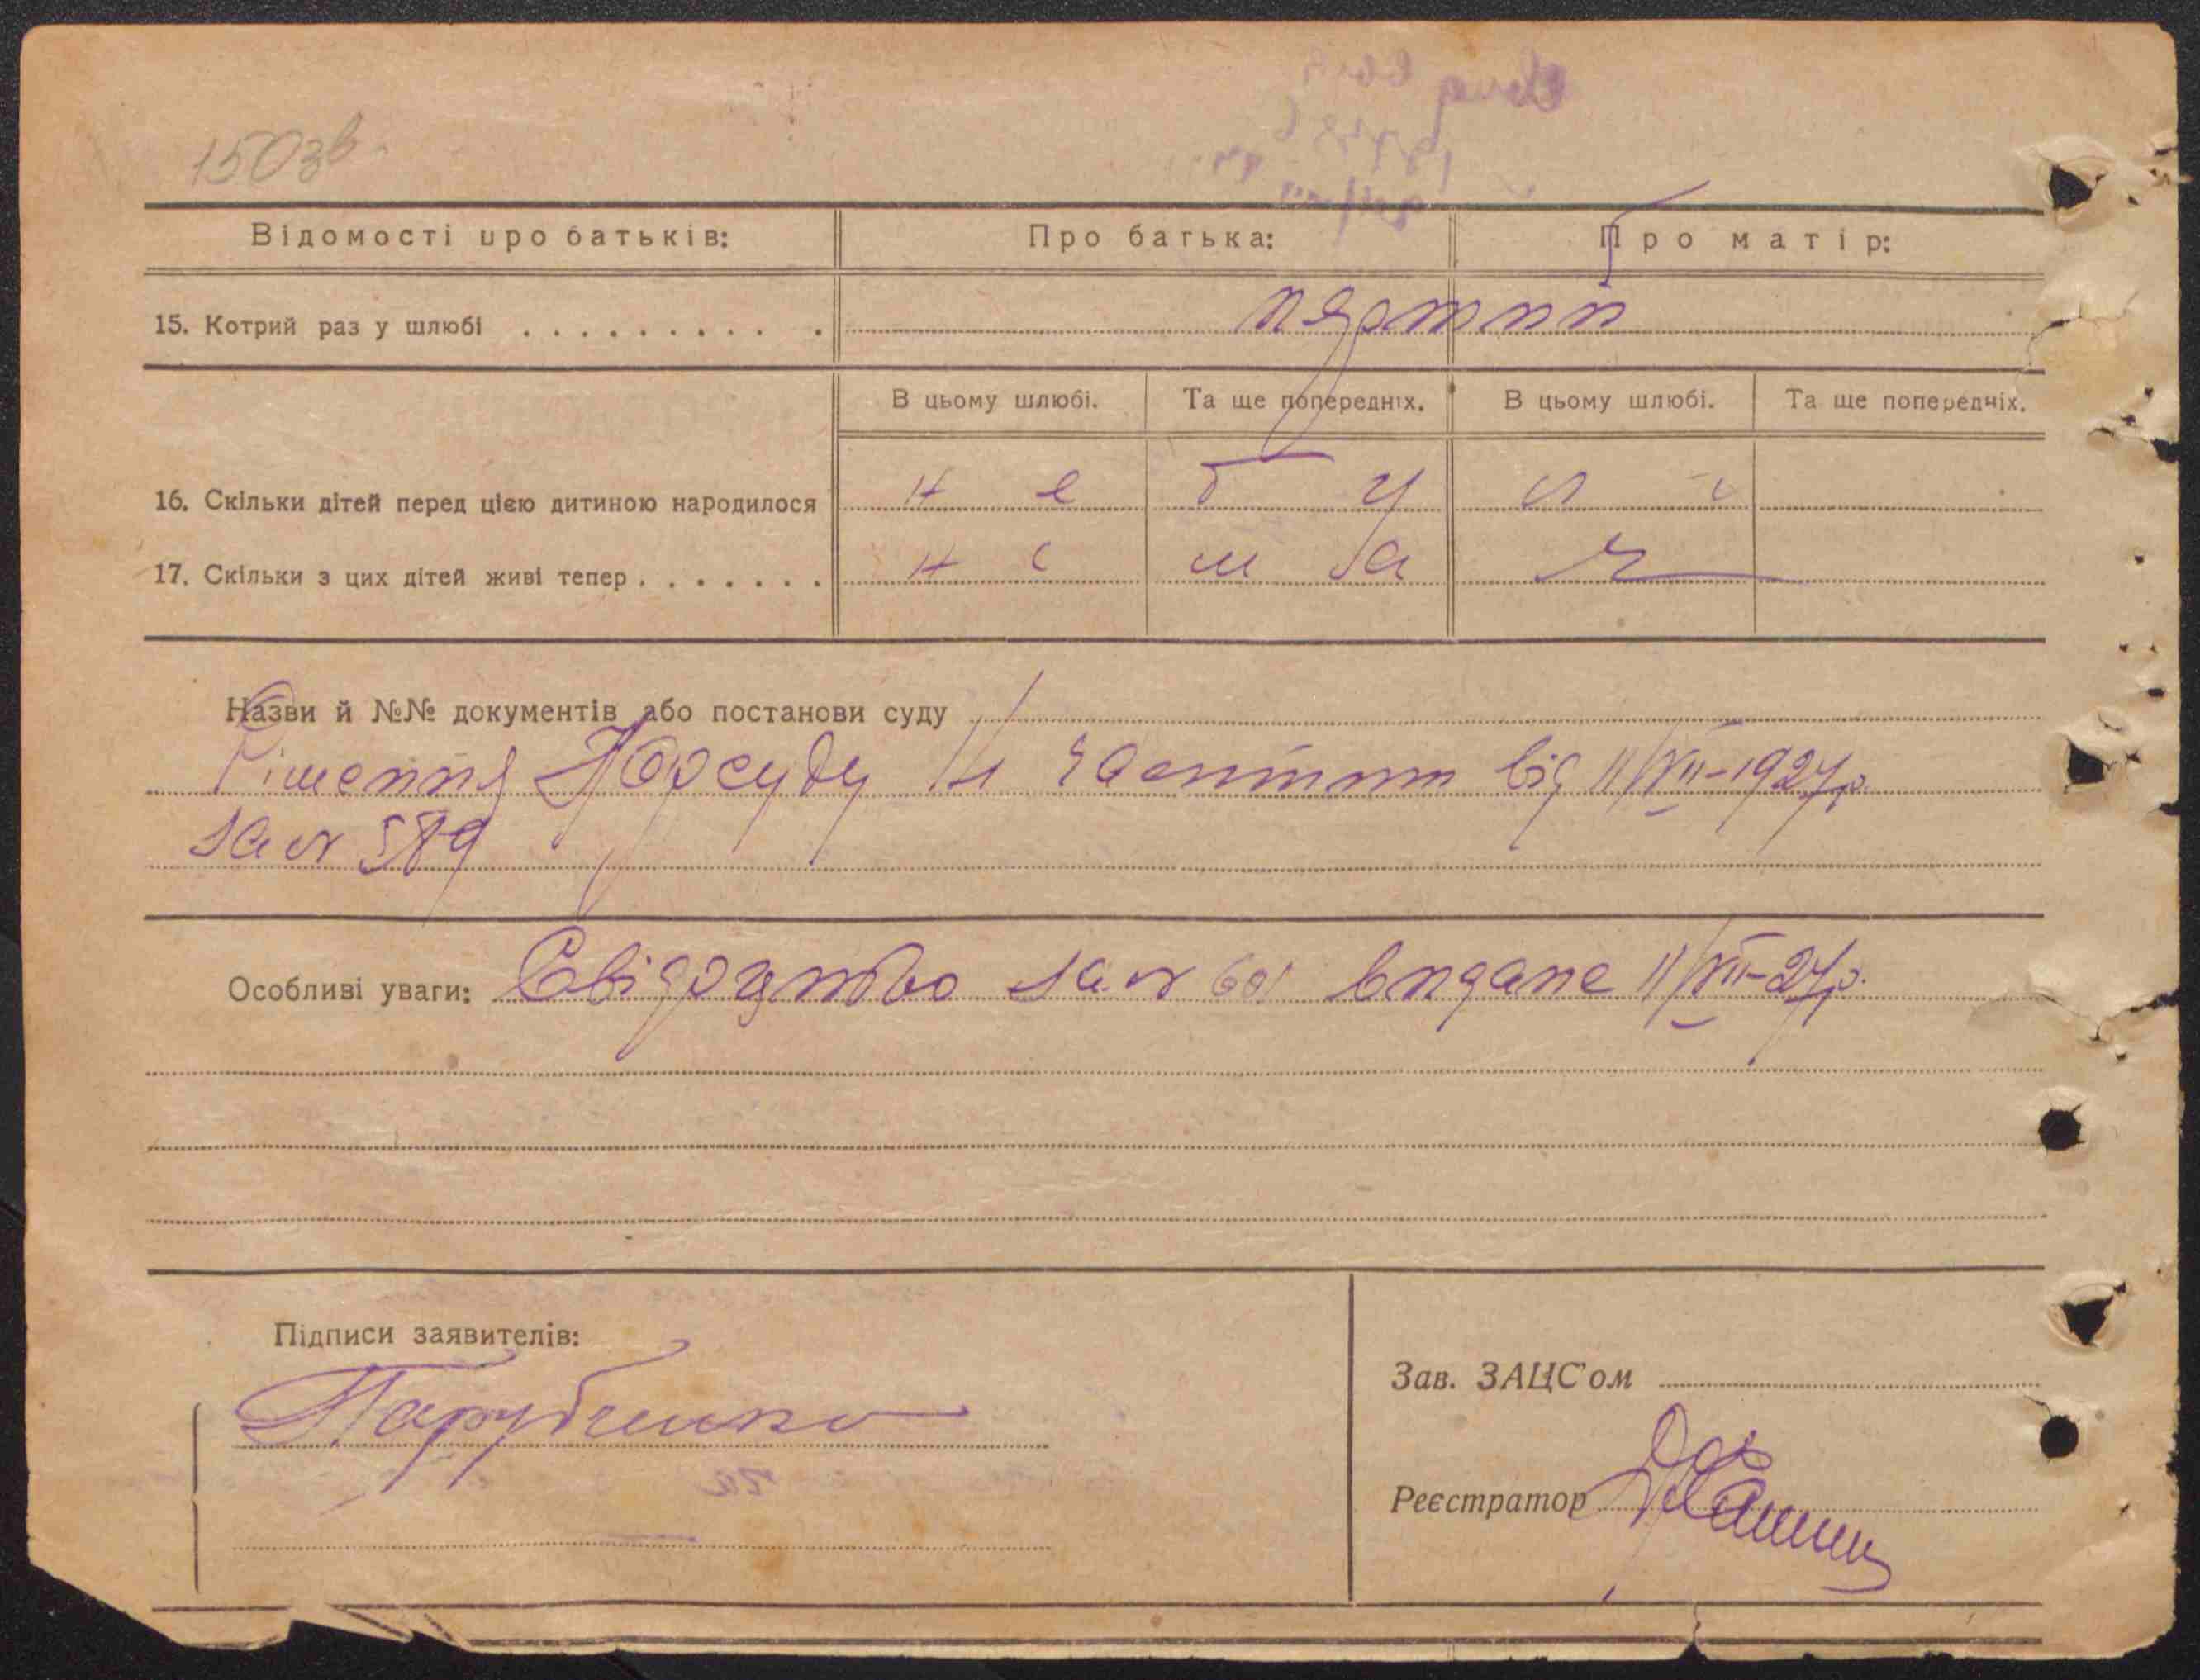 150зв.
Відомості про батьків: Про батька: Про матір:
15. Котрий раз у шлюбі . . . . . . . . . . перший
В цьому шлюбі. Та ще попередніх. В цьому шлюбі. Та ще попередніх.
16. Скільки дітей перед цією дитиною народилося не були
17. Скільки з цих дітей живі тепер . . . . . . . нема
Назви й №№ документів або постанови суду
Рішення Нарсуду 11 від 11/XII-1927р.
за № 589
Особливі уваги: Свідоцтво за № 601 видане 11/XII-27р.
Підписи заявителів:
Зав. ЗАЦС'ом
Парубченко
Реєстратор